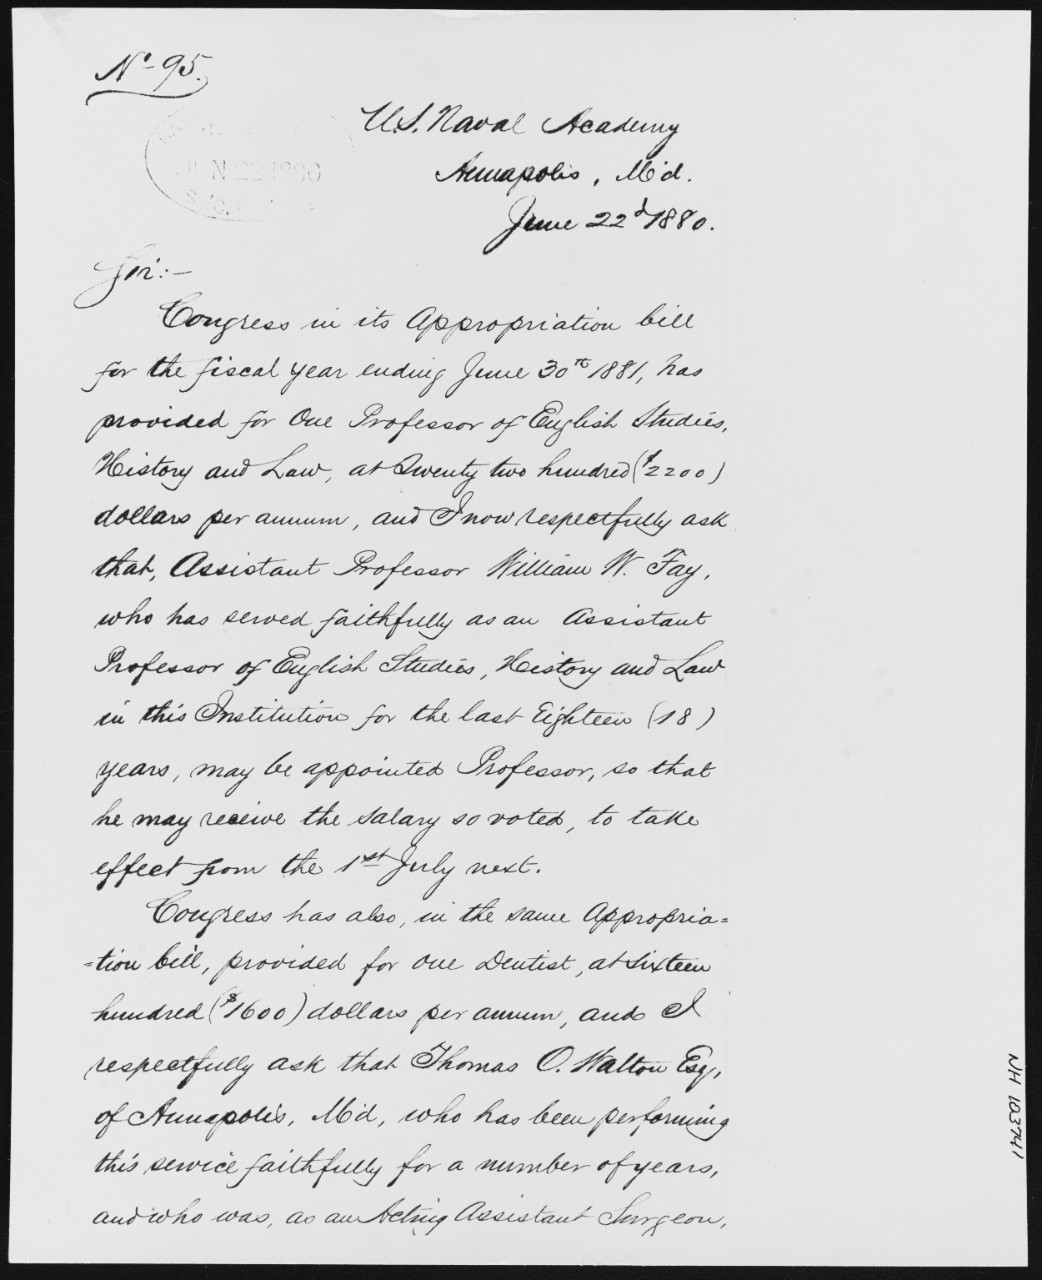 No- 95.
U.S. Naval Academy
Annapolis, Md.
June 22d 1880.
JUN 22 1880
Sir:-
Congress in its Appropriation bill
for the fiscal year ending June 30th 1881, has
provided for One Professor of English Studies,
History and Law, at Twenty two hundred ($2200)
dollars per annum, and I now respectfully ask
that, Assistant Professor William W. Fay,
who has served faithfully as an Assistant
Professor of English Studies, History and Law
in this Institution for the last Eighteen (18)
years, may be appointed Professor, so that
he may receive the salary so voted, to take
effect from the 1st July next.
Congress has also, in the same Appropria=
=tion bill, provided for one Dentist, at sixteen
hundred ($1600) dollars per annum, and I
respectfully ask that Thomas O. Walton Esq,
of Annapolis, Md, who has been performing
this service faithfully for a number of years,
and who was, as an Acting Assistant Surgeon,
NH 103741